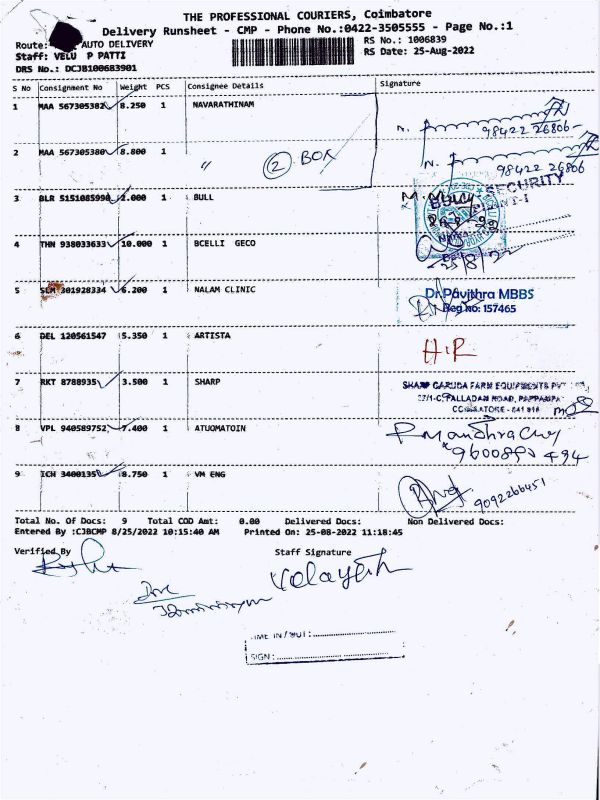 THE PROFESSIONAL COURIERS, Coimbatore
Delivery Runsheet - CMP - Phone No.:0422-3505555 - Page No.:1
Route: AUTO DELIVERY
RS No.: 1006839
Staff: VELU P PATTI
RS Date: 25-Aug-2022
DRS No.: DCJB100683901
S No Consignment No Weight PCS Consignee Details Signature
1 MAA 567305382 8.250 1 NAVARATHINAM
98422 26806
2 MAA 567305380 8.800 1 〃 2 BOX
98422 26806
3 BLR 5151085990 2.000 1 BULL
SECURITY
PLANT-I
4 THN 938033633 10.000 1 BCELLI GECO
25/8/22
5 SLM 301928334 6.200 1 NALAM CLINIC
Dr.Pavithra MBBS
Reg no: 157465
6 DEL 120561547 5.350 1 ARTISTA
H.R
7 RKT 8788935 3.500 1 SHARP
SHARP GARUDA FARM EQUIPMENTS PVT
PALLADAM ROAD, PAPPAMPA
COIMBATORE - 641 016
8 VPL 940589752 7.400 1 ATUOMATOIN
9 ICH 3400135 8.750 1 VM ENG
9092266451
Total No. Of Docs: 9 Total COD Amt: 0.00 Delivered Docs: Non Delivered Docs:
Entered By :CJBCMP 8/25/2022 10:15:40 AM Printed On: 25-08-2022 11:18:45
Verified By Staff Signature
TIME IN / OUT :
SIGN :